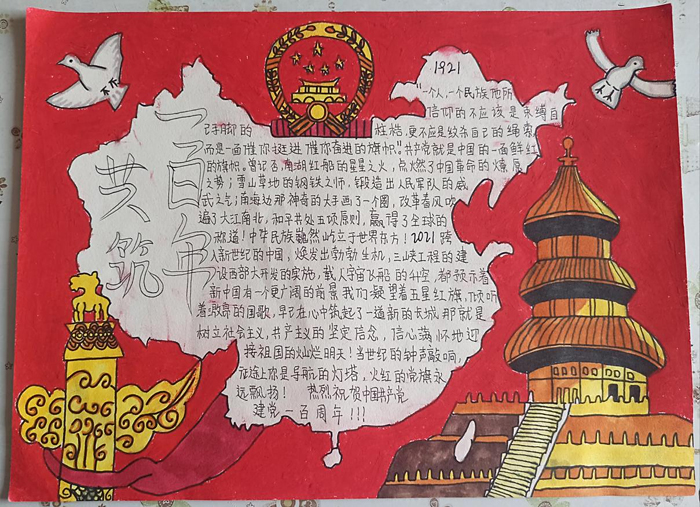 1921
"一个人,一个民族他所
信仰的不应该是束缚自
己手脚的 桎梏,更不应是绞杀自己的绳索
而是一面催你挺进,催你奋进的旗帜."共产党就是中国的一面鲜红
的旗帜。曾记否,南湖红船的星星之火,点燃了中国革命的燎原
之势;雪山草地的钢铁之师,锻造出人民军队的威
武之气;南海边那神奇的大手画了一个圈,改革春风吹
遍了大江南北,和平共处五项原则,赢得了全球的
称道!中华民族巍然屹立于世界东方!2021跨
入新世纪的中国,焕发出勃勃生机,三峡工程的建
设西部大开发的实施,载人宇宙飞船的升空,都预示着
新中国有一个更广阔的前景我们凝望着五星红旗,倾听
着嘹亮的国歌,早已在心中筑起了一道新的长城,那就是
树立社会主义,共产主义的坚定信念,信心满怀地迎
接祖国的灿烂明天!当世纪的钟声敲响,
征途上你是导航的灯塔,火红的党旗永
远飘扬! 热烈祝贺中国共产党
建党一百周年!!!
共筑
一百年